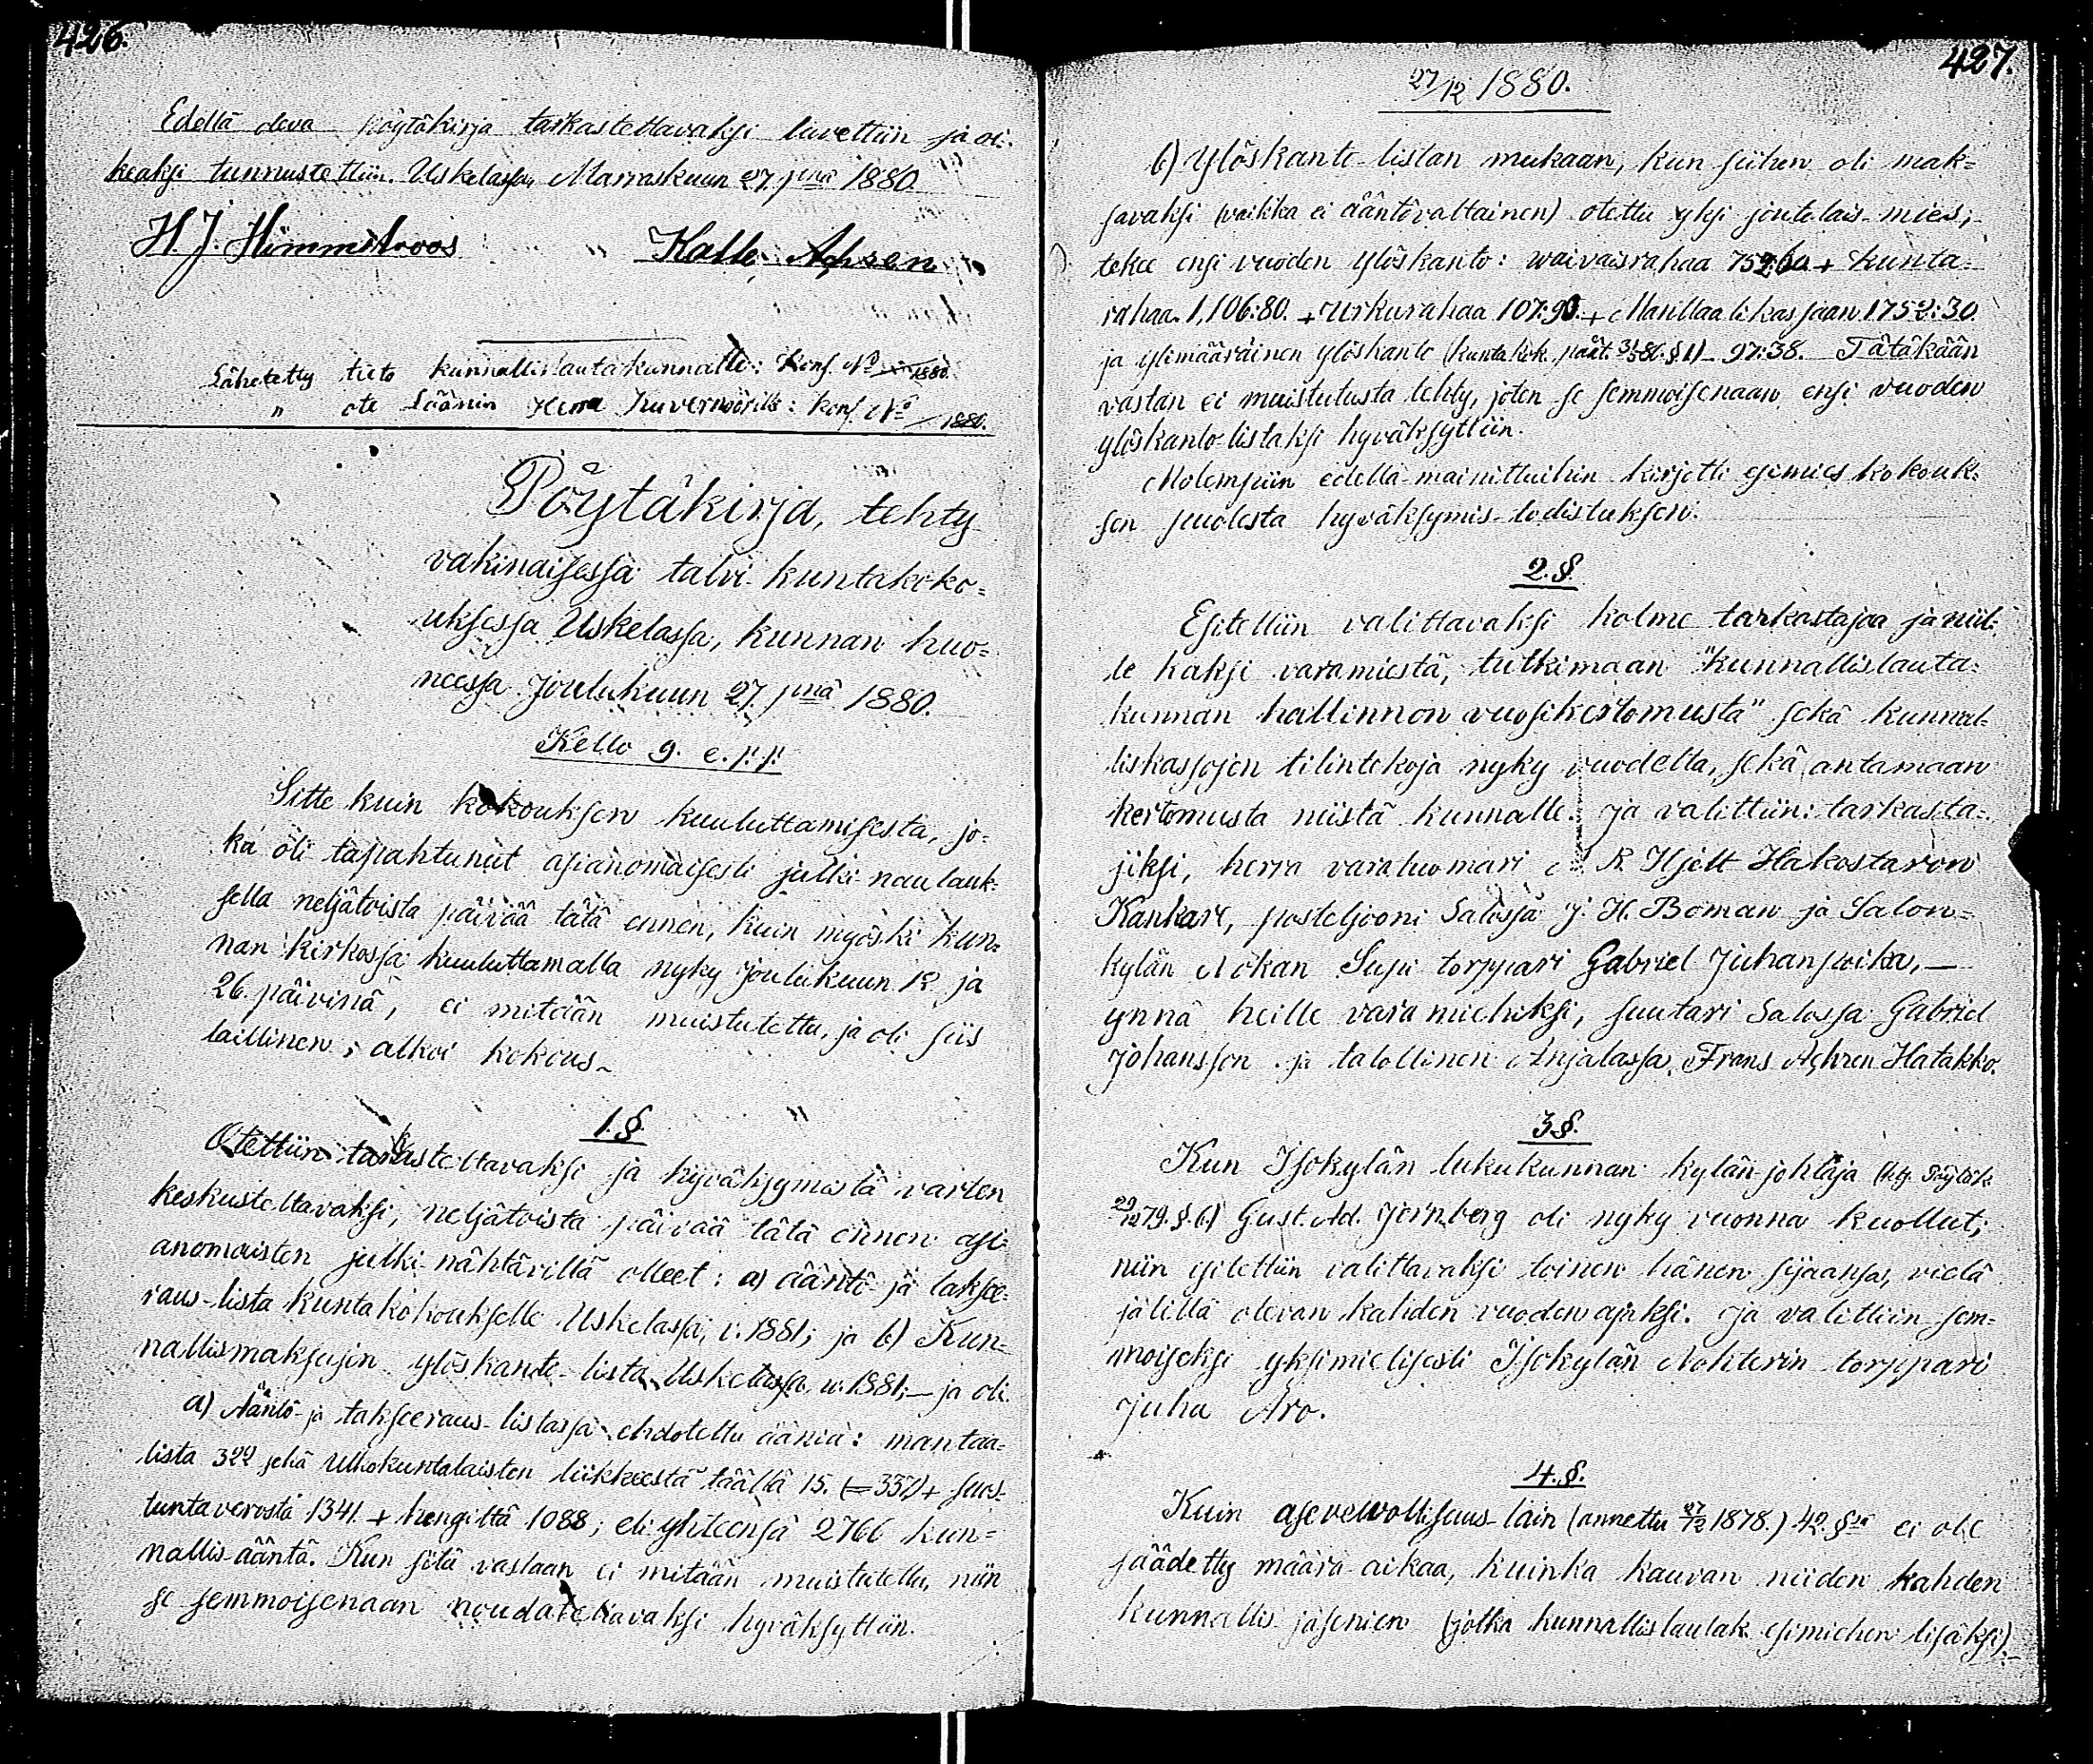 426.
Edellä oleva pöytäkirja tarkastettavaksi luvettiin ja oi-
keaksi tunnustettiin. Uskelassa, Marraskuun 27. pnä 1880.
H. J. Himmilroos Kalle
Lähetetty tieto kunnallislautakunnalle: Konf. No 1880.
" ote Läänin Herra Kuvernöörille: Konf. No 1880.
Pöytäkirja, tehty
vakinaisessa talvi-kuntakoko=
uksessa Uskelassa, kunnan huo=
neessa Joulukuun 27. pnä 1880.
Kello 9. e. p. p.
Sitte kuin kokouksen kuuluttamisesta, jo=
ka oli tapahtunut asianomaisesti julki-naulauk-
sella neljätoista päivää tätä ennen, kuin myöski kun=
nan kirkossa kuuluttamalla nyky Joulukuun 12 ja
26. päivinä, ei mitään muistutettu, ja oli siis
laillinen; alkoi kokous.
1. §.
Otettiin tarkasteltavaksi ja hyväksymistä varten
keskusteltavaksi, neljätoista päivää tätä ennen asi=
anomaisten julki-nähtävillä olleet: a) ääntö- ja taksee=
raus-lista kuntakokoukselle Uskelassa, v. 1881; ja b) Kun=
nallismaksujen ylöskanto-lista Uskelassa v. 1881; — ja oli
a) Ääntö- ja takseeraus-listassa ehdotettu ääniä: mantaa=
lista 322 sekä Ulkokuntalaisten liikkeestä täällä 15. (=337) + suos-
tuntaverosta 1341. + hengiltä 1088; eli yhteensä 2766 kun=
nallis-ääntä. Kun sitä vastaan ei mitään muistutettu, niin
se semmoisenaan noudatettavaksi hyväksyttiin.
427.
27/12 1880.
b) Ylöskanto-listan mukaan, kun siihen oli mak=
savaksi (vaikka ei ääntövaltainen) otettu yksi joutolais-mies;
tekee ensi vuoden ylöskanto: waivaisrahaa 752:60 + Kunta=
rahaa. 1,106:80. + Urkurahaa 107:90. + Manttaalikassaan 1752:30.
ja ylimääräinen ylöskanto (kuntakok. pöüt. §1) — 97:38. Tätäkään
vastan ei muistutusta tehty, joten se semmoisenaan ensi vuoden
ylöskanto-listaksi hyväksyttiin.
Molempiin edellä-mainittuihin kirjotti esimies kokouk=
sen puolesta hyväksymis-todistuksen.
2. §.
Esitettiin valittavaksi kolme tarkastajaa ja niil-
le kaksi varamiestä, tutkimaan "kunnallislauta=
kunnan hallinnon vuosikertomusta" sekä kunnal-
liskassojen tilintekoja nyky vuodelta, sekä antamaan
kertomusta niistä kunnalle. Ja valittiin: tarkasta=
jiksi, herra varatuomari R. Hjelt Hakostaron
Kankare, posteljooni Salossa J. H. Boman ja Salon=
kylän Nokan Supi torppari Gabriel Juhanpoika, —
ynnä heille varamiehiksi, suutari Salossa Gabriel
Johansson ja talollinen Anjalassa, Frans Hatakko.
3. §.
Kun Isokylän lukukunnan kylänjohtaja (ktg. Pöytäk.
29/12 79. § 6.) Gust. Ad. Jernberg oli nyky vuonna kuollut;
niin esitettiin valittavaksi toinen hänen sijaansa, vielä
jälillä olevan kahden vuoden ajaksi. Ja valittiin sem=
moiseksi yksimielisesti Isokylän Nohterin torppari
Juha Aro.
4. §.
Kuin asevelvollisuus-lain (annettu 27/12 1878.) 42. § ei ole
säädetty määrä-aikaa, kuinka kauvan niiden kahden
kunnallis-jäsenien (jotka kunnallislautak. esimiehen lisäksi)